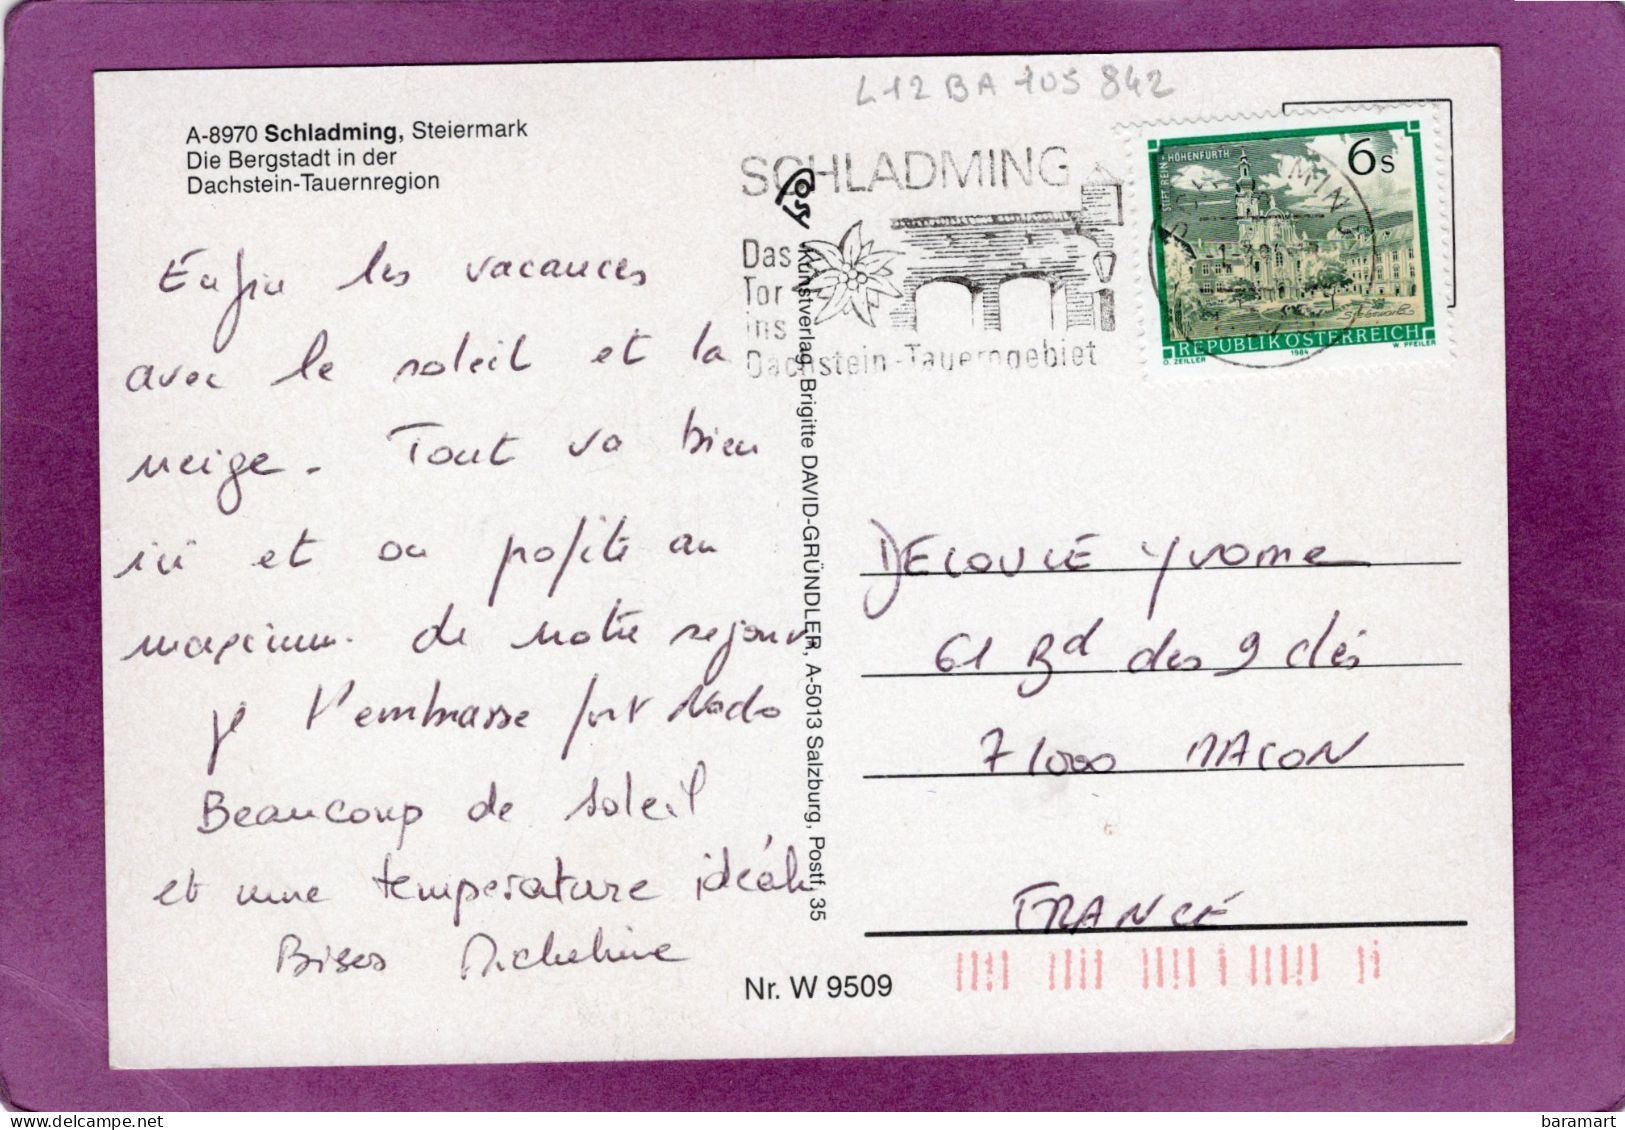 L12 BA 105 842
A-8970 Schladming, Steiermark
Die Bergstadt in der
Dachstein-Tauernregion
SCHLADMING
Das
Tor
ins
Dachstein-Tauerngebiet
STIFT REIN-HOHENFURTH
6s
REPUBLIK ÖSTERREICH
O. ZEILLER 1984 W. PFEILER
Enfin les vacances
avec le soleil et la
neige. Tout va bien
ici et on profite au
maximum de notre sejour
je t'embrasse fort Nado
Beaucoup de soleil
et une temperature idéale
Bises Micheline
Kunstverlag Brigitte DAVID-GRÜNDLER, A-5013 Salzburg, Postf. 35
DECOUCE Yvonne
61 Bd des 9 clés
71000 MACON
FRANCE
Nr. W 9509
baramart